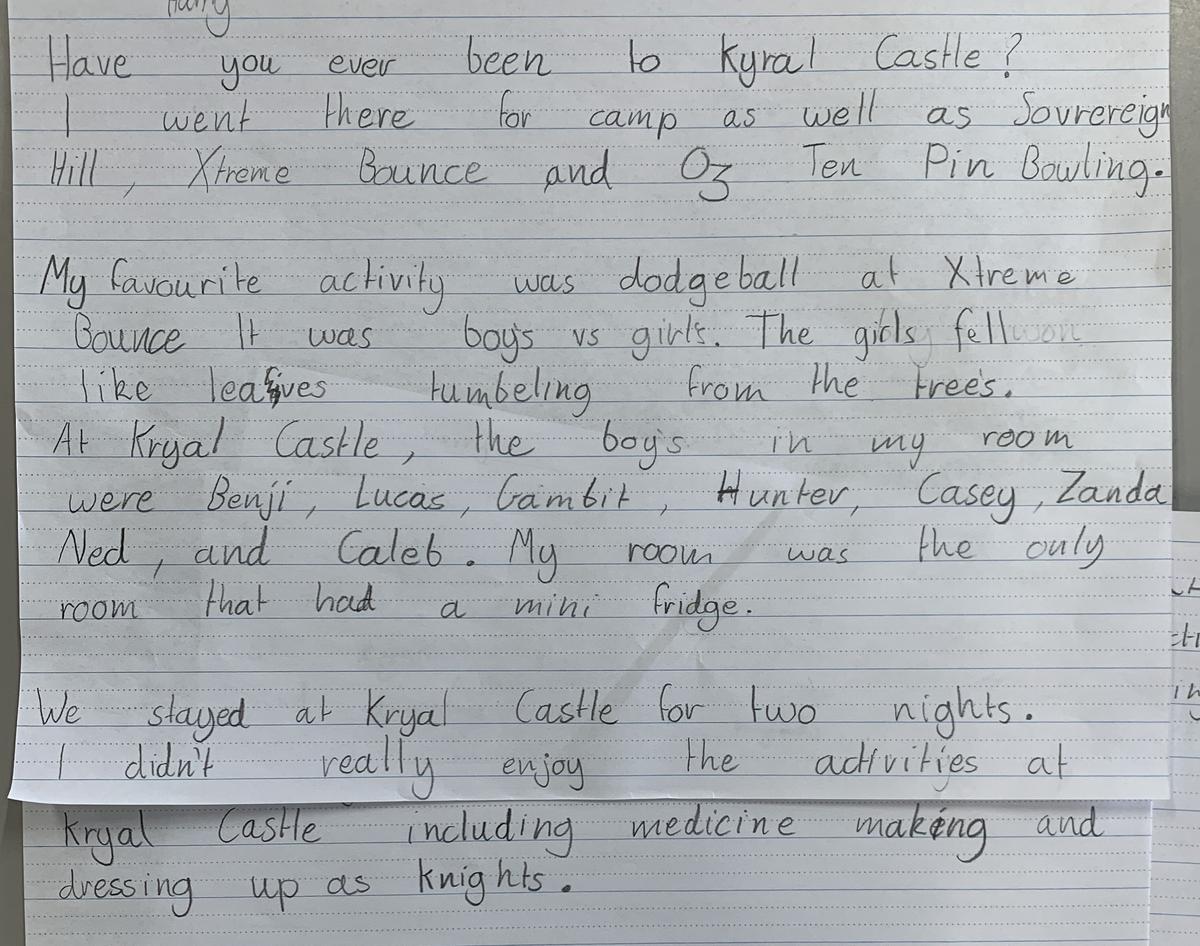 Have you ever been to Kyral Castle?
I went there for camp as well as Sovrereign
Hill, Xtreme Bounce and Oz Ten Pin Bowling.
My favourite activity was dodgeball at Xtreme
Bounce It was boys vs girls. The girls fell
like leaves tumbeling from the trees.
At Kryal Castle, the boys in my room
were Benji, Lucas, Gambit, Hunter, Casey, Zanda
Ned, and Caleb. My room was the only
room that had a mini fridge.
We stayed at Kryal Castle for two nights.
I didn't really enjoy the activities at
Kryal Castle including medicine making and
dressing up as knights.